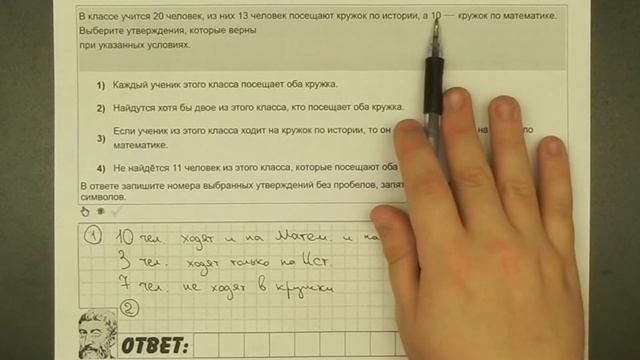 В классе учится 20 человек, из них 13 человек посещают кружок по истории, а 10 — кружок по математике.
Выберите утверждения, которые верны
при указанных условиях.
1) Каждый ученик этого класса посещает оба кружка.
2) Найдутся хотя бы двое из этого класса, кто посещает оба кружка.
3) Если ученик из этого класса ходит на кружок по истории, то он на по
математике.
4) Не найдётся 11 человек из этого класса, которые посещают оба
В ответе запишите номера выбранных утверждений без пробелов,
символов.
1 10 чел. ходят и на Матем. и на
3 чел. ходят только на Ист.
7 чел. не ходят в кружки
2
ОТВЕТ: